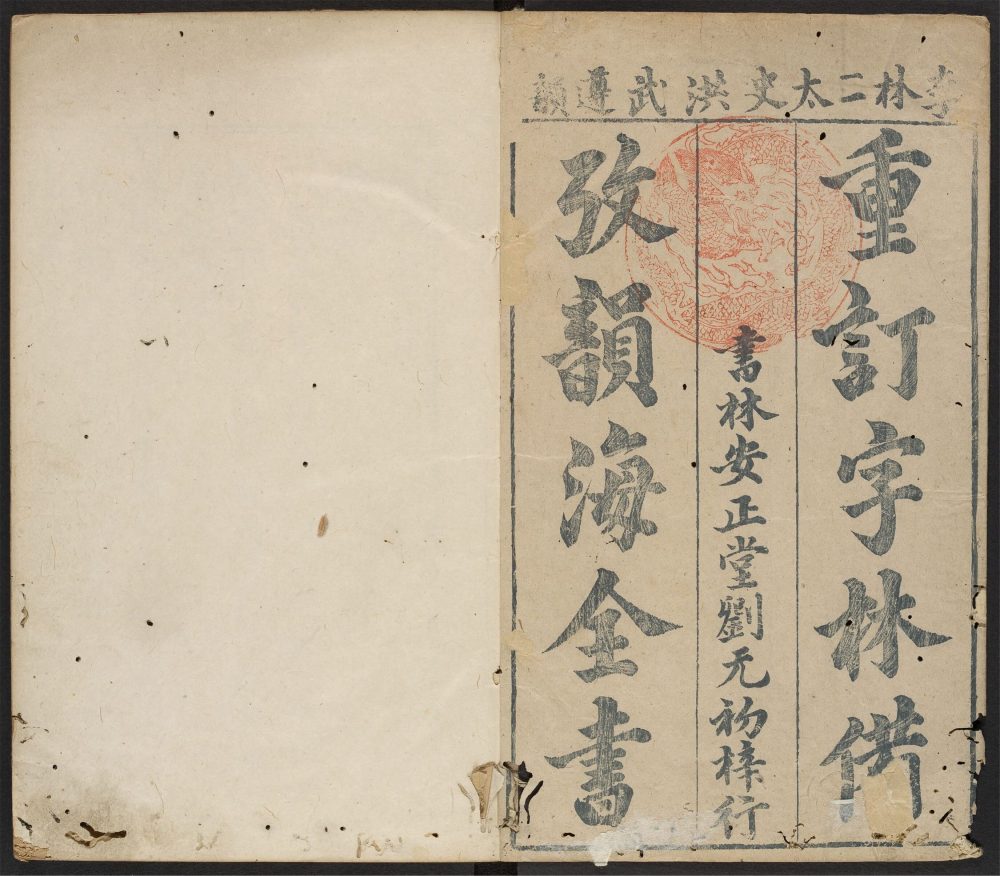 李林二太史洪武遵韻
重訂字林備
書林安正堂劉元初梓行
攷韻海全書